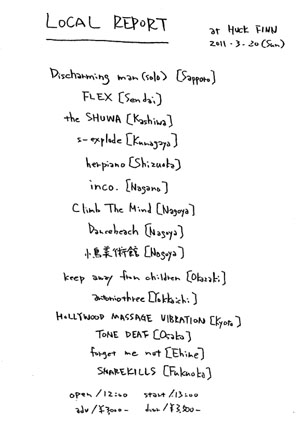 LOCAL REPORT
at HUCK FINN
2011・3・20 (Sun)
Discharming man (solo) [Sapporo]
FLEX [Sendai]
the SHUWA [Kashiwa]
s-explode [Kumagaya]
herpiano [Shizuoka]
inco. [Nagano]
Climb The Mind [Nagoya]
Dancebeach [Nagoya]
小鳥美術館 [Nagoya]
keep away from children [Okazaki]
antoniothree [Yokkaichi]
HOLLYWOOD MASSAGE VIBRATION [Kyoto]
TONE DEAF [Osaka]
forget me not [Ehime]
SHAREKILLS [Fukuoka]
open / 12:00 start / 13:00
adv / ¥3000- door / ¥3,500-